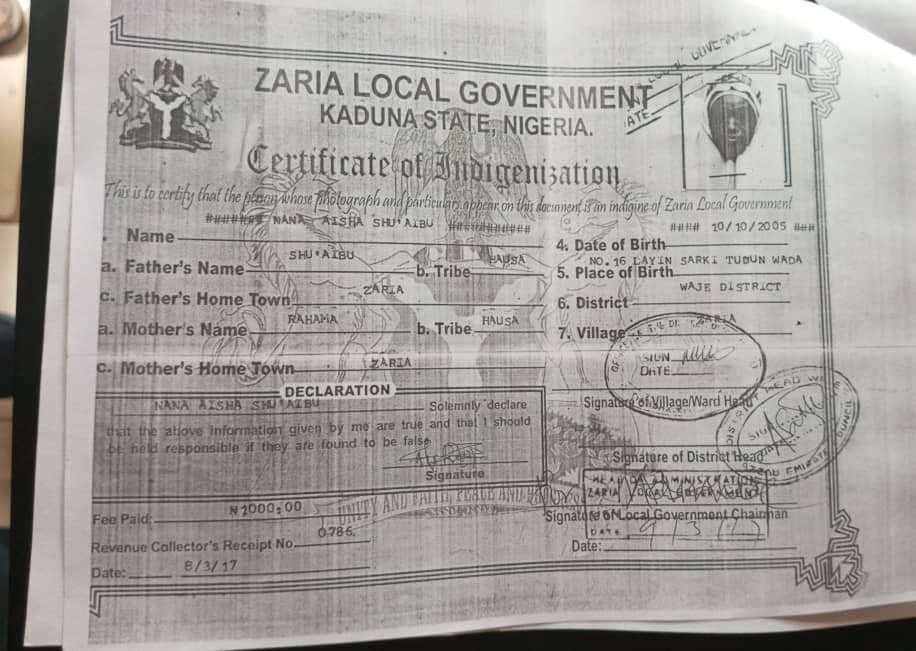 ZARIA LOCAL GOVERNMENT
KADUNA STATE, NIGERIA.
Certificate of Indigenization
This is to certify that the person whose photograph and particulars appear on this document is an indigine of Zaria Local Government
Name ####### NANA AISHA SHU'AIBU ###########
4. Date of Birth #### 10/10/2005 ###
a. Father's Name SHU'AIBU b. Tribe HAUSA
5. Place of Birth NO. 16 LAYIN SARKI TUDUN WADA
c. Father's Home Town ZARIA
6. District WAJE DISTRICT
a. Mother's Name RAHAMA b. Tribe HAUSA
7. Village ZARIA
c. Mother's Home Town ZARIA
SIGN
DATE
Signature of Village/Ward Head
DECLARATION
NANA AISHA SHU'AIBU Solemnly declare
that the above information given by me are true and that I should
be held responsible if they are found to be false
Signature
DISTRICT HEAD
SIGN
ZAZZAU EMIRATE COUNCIL
Signature of District Head
HEAD OF ADMINISTRATION
ZARIA LOCAL GOVERNMENT
UNITY AND FAITH, PEACE AND
Fee Paid: N1000;00
Signature of Local Government Chairman
Revenue Collector's Receipt No 0786.
DATE 9/3/17
Date:
Date: 8/3/17